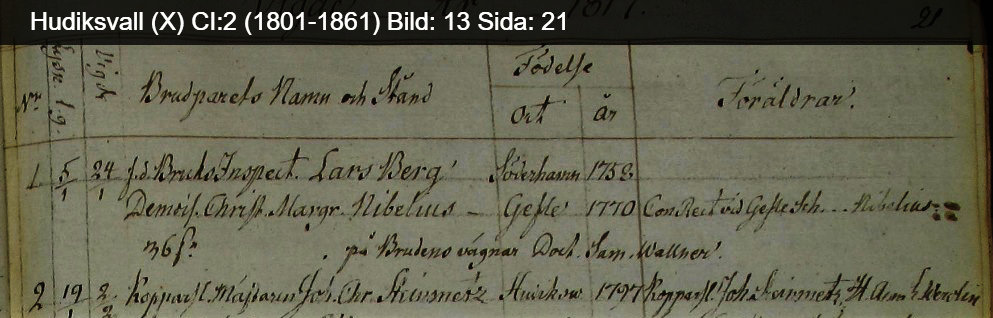 Hudiksvall (X) CI:2 (1801-1861) Bild: 13 Sida: 21
21
Nr. Lysn. l.g. Vigde Brudparets Namn och Stånd Födelse Föräldrar.
Ort år
1 5/1 24/1 f.d. Bruks Inspect. Lars Berg Söderhamn 1758
Demois. Christ. Margr. Nibelius – Gefle 1770 Con Rect vid Gefle Sch. Nibelius
36 på Brudens vägnar Doct. Sam. Wallner.
2 19 2/2 Kopparsl. Mästaren Joh. Chr. Steinmetz 1797 Kopparsl. Joh. Steinmetz, H.